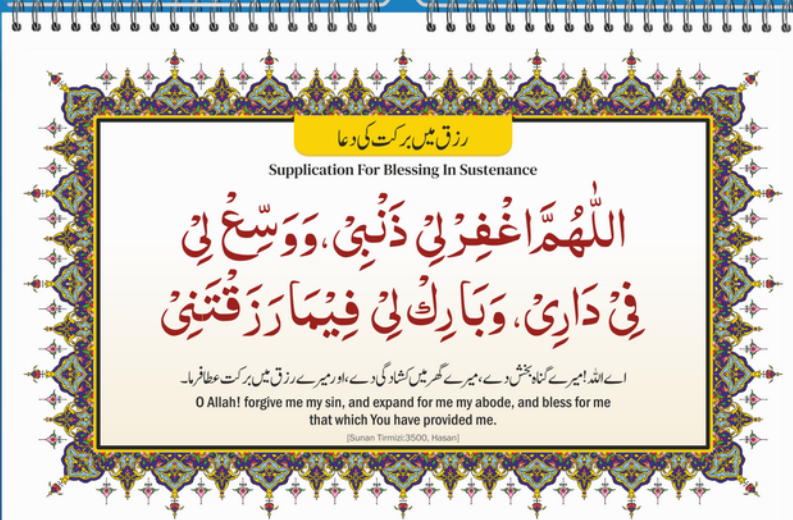 رزق میں برکت کی دعا
Supplication For Blessing In Sustenance
اللّٰهُمَّ اغْفِرْ لِیْ ذَنْبِیْ، وَوَسِّعْ لِیْ
فِیْ دَارِیْ، وَبَارِكْ لِیْ فِیْمَا رَزَقْتَنِیْ
اے اللہ! میرے گناہ بخش دے، میرے گھر میں کشادگی دے، اور میرے رزق میں برکت عطا فرما۔
O Allah! forgive me my sin, and expand for me my abode, and bless for me
that which You have provided me.
[Sunan Tirmizi:3500, Hasan]